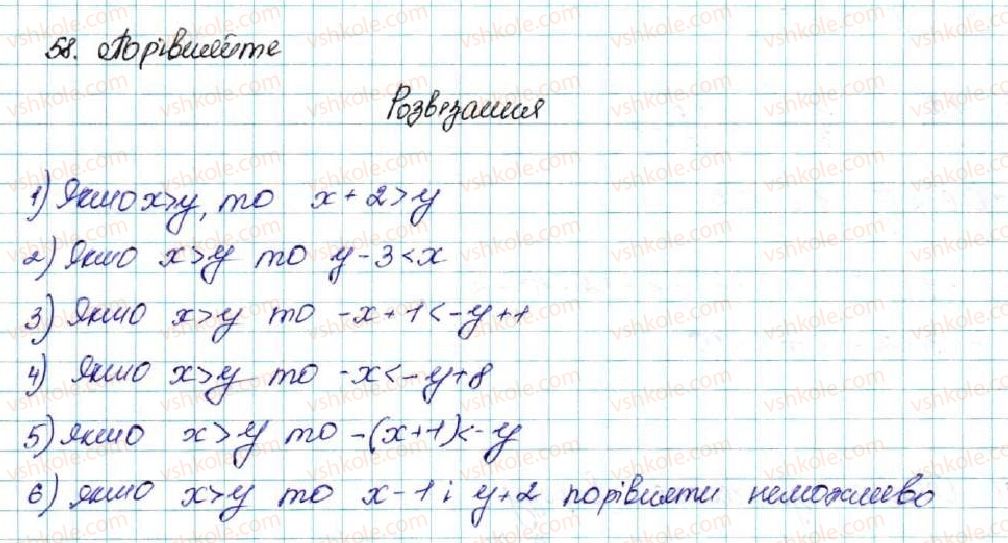 58. Порівняйте
Розв'язання
1) Якшо x>y, то x + 2 > y
2) Якшо x > y то y - 3 < x
3) Якшо x > y то -x + 1 < -y + 1
4) Якшо x > y то -x < -y + 8
5) якшо x > y то -(x+1) < -y
6) якшо x > y то x - 1 і y + 2 порівняти неможливо
vshkole.com